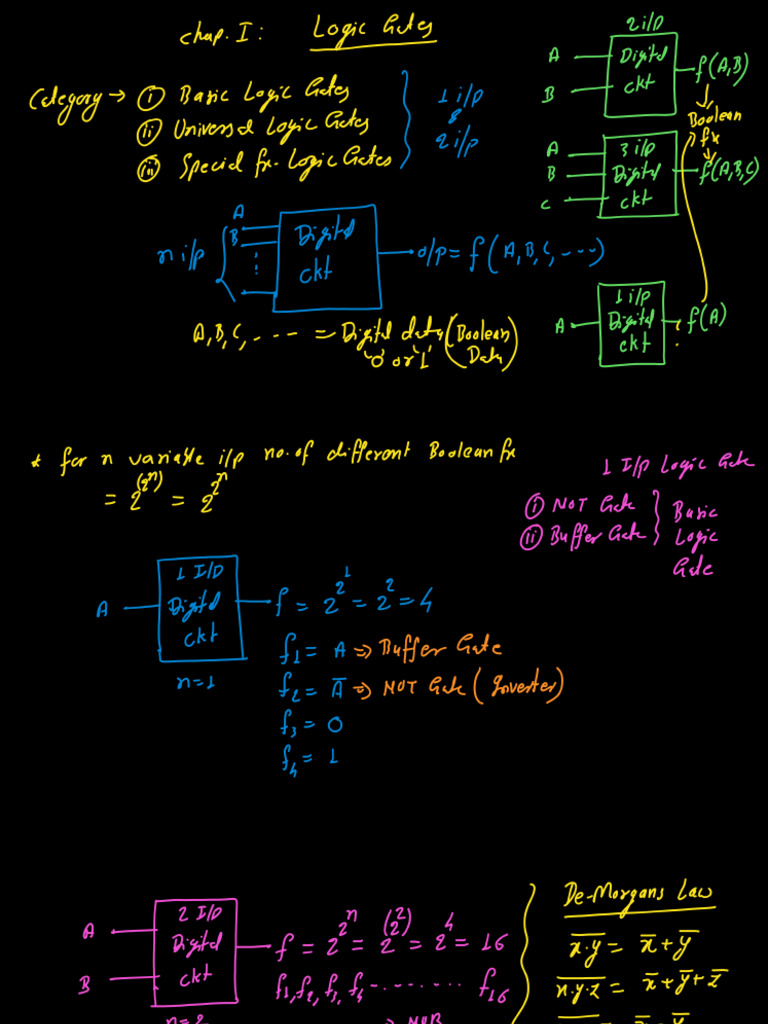 Chap. I: Logic Gates
Category → (i) Basic Logic Gates
(ii) Universal Logic Gates
(iii) Special fx. Logic Gates
1 i/p
&
2 i/p
2 i/p
A
B
Digital
ckt
f(A,B)
Boolean
fx
A
B
C
3 i/p
Digital
ckt
f(A,B,C)
n i/p
A
B
⋮
Digital
ckt
o/p = f(A, B, C, ----)
A
1 i/p
Digital
ckt
f(A)
A, B, C, ---- = Digital data (Boolean
'0' or '1' Data)
* for n variable i/p no. of different Boolean fx
= 2^(2^n) = 2^2^n
1 I/p Logic Gate
(i) NOT Gate
(ii) Buffer Gate
Basic
Logic
Gate
A
1 I/p
Digital
ckt
n=1
f = 2^2^1 = 2^2 = 4
f1 = A ⇒ Buffer Gate
f2 = A̅ ⇒ NOT Gate (Inverter)
f3 = 0
f4 = 1
A
B
2 I/p
Digital
ckt
n=2
f = 2^2^n = 2^(2^2) = 2^4 = 16
f1, f2, f3, f4 -------- f16
De-Morgans Law
\overline{x.y} = x̅ + y̅
\overline{x.y.z} = x̅ + y̅ + z̅